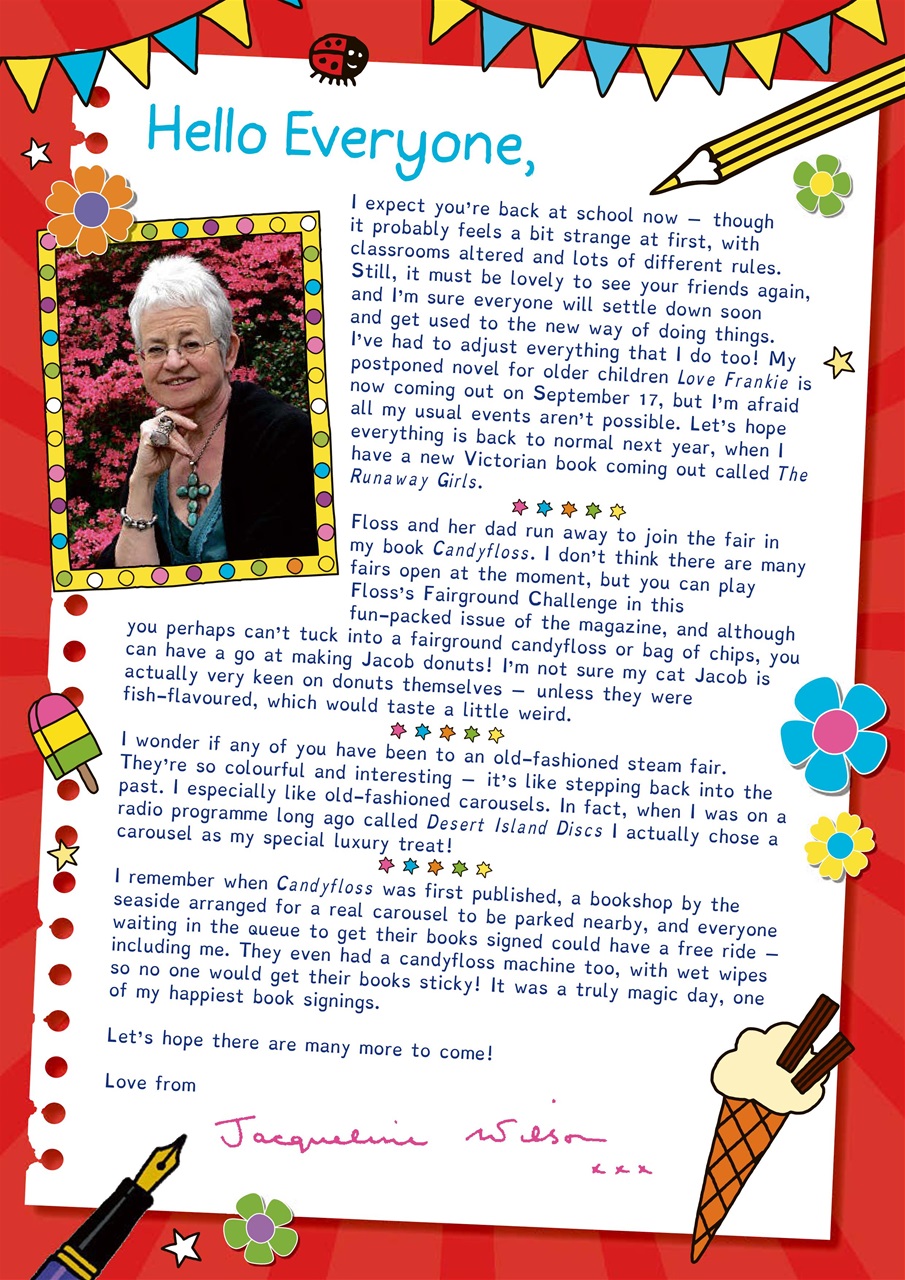 Hello Everyone,
I expect you're back at school now – though
it probably feels a bit strange at first, with
classrooms altered and lots of different rules.
Still, it must be lovely to see your friends again,
and I'm sure everyone will settle down soon
and get used to the new way of doing things.
I've had to adjust everything that I do too! My
postponed novel for older children Love Frankie is
now coming out on September 17, but I'm afraid
all my usual events aren't possible. Let's hope
everything is back to normal next year, when I
have a new Victorian book coming out called The
Runaway Girls.
Floss and her dad run away to join the fair in
my book Candyfloss. I don't think there are many
fairs open at the moment, but you can play
Floss's Fairground Challenge in this
fun-packed issue of the magazine, and although
you perhaps can't tuck into a fairground candyfloss or bag of chips, you
can have a go at making Jacob donuts! I'm not sure my cat Jacob is
actually very keen on donuts themselves – unless they were
fish-flavoured, which would taste a little weird.
I wonder if any of you have been to an old-fashioned steam fair.
They're so colourful and interesting – it's like stepping back into the
past. I especially like old-fashioned carousels. In fact, when I was on a
radio programme long ago called Desert Island Discs I actually chose a
carousel as my special luxury treat!
I remember when Candyfloss was first published, a bookshop by the
seaside arranged for a real carousel to be parked nearby, and everyone
waiting in the queue to get their books signed could have a free ride –
including me. They even had a candyfloss machine too, with wet wipes
so no one would get their books sticky! It was a truly magic day, one
of my happiest book signings.
Let's hope there are many more to come!
Love from
Jacqueline Wilson
x x x